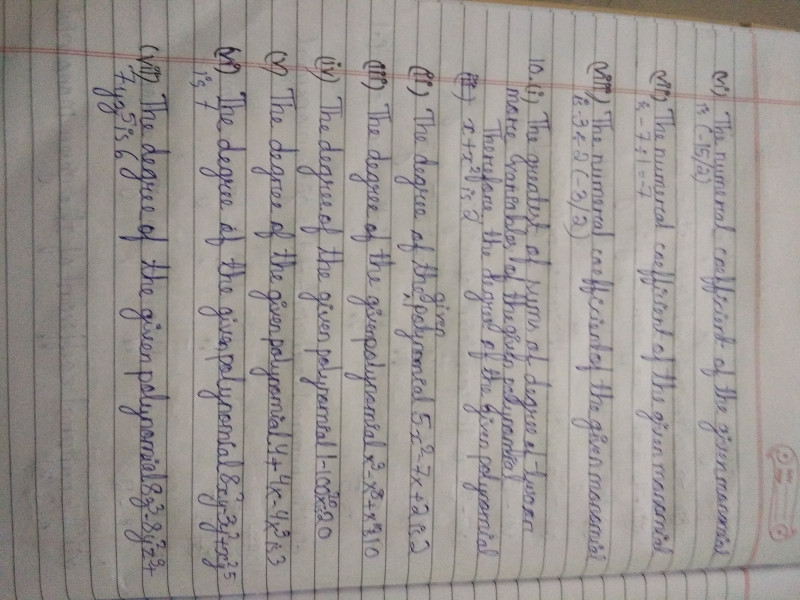 (vi) The numerical coefficient of the given monomial
is (-15/2)
(vii) The numerical coefficient of the given monomial
is -7 ÷ 1 = -7
(viii) The numerical coefficient of the given monomial
is -3 ÷ 2 (-3/2)
10. (i) The greatest of sum of degree of two or
more variables of the given polynomial
Therefore the degree of the given polynomial
x + x² is 2
(ii) The degree of the given polynomial 5x² - 7x + 2 is 2
(iii) The degree of the given polynomial
(iv) The degree of the given polynomial 1 - 100x²⁰ = 20
(v) The degree of the given polynomial 4 + 4x - 4x³ is 3
(vi) The degree of the given polynomial
is 7
(vii) The degree of the given polynomial
7yz⁵ is 6